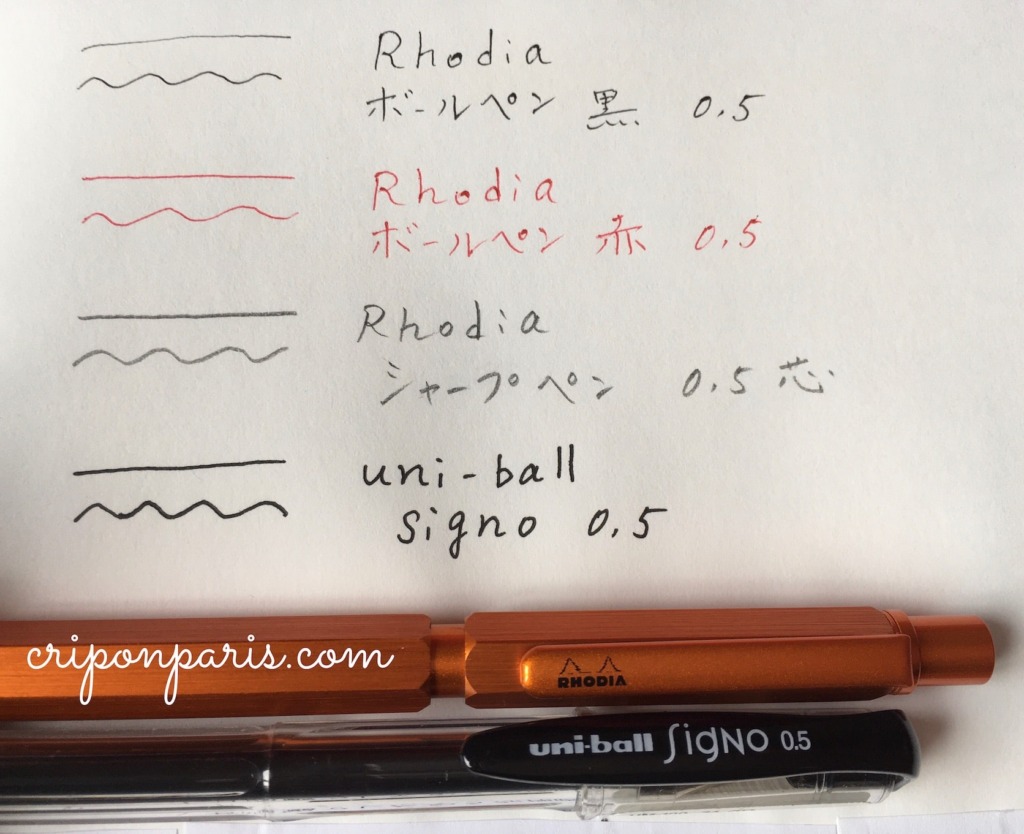 Rhodia
ボールペン 黒 0.5
Rhodia
ボールペン 赤 0.5
Rhodia
シャープペン 0.5 芯
uni-ball
signo 0.5
criponparis.com
RHODIA
uni-ball SigNO 0.5